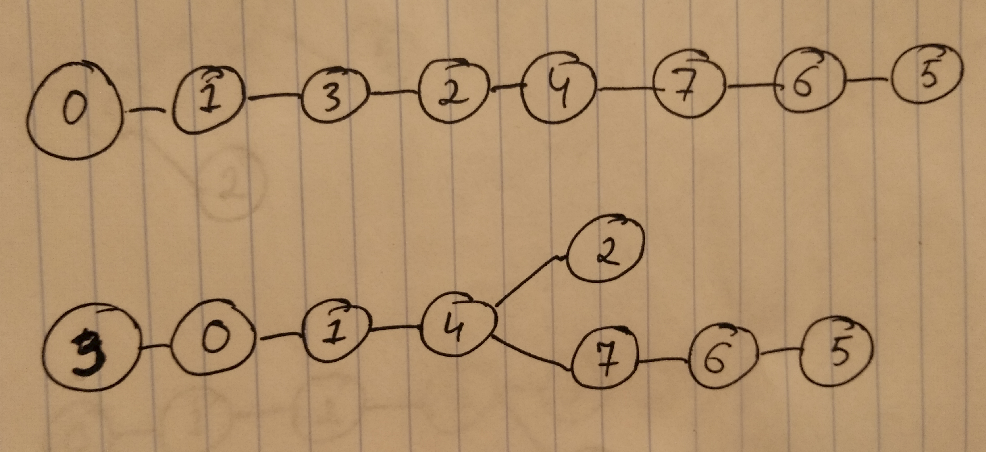 0 1 3 2 4 7 6 5
2
3 0 1 4 7 6 5